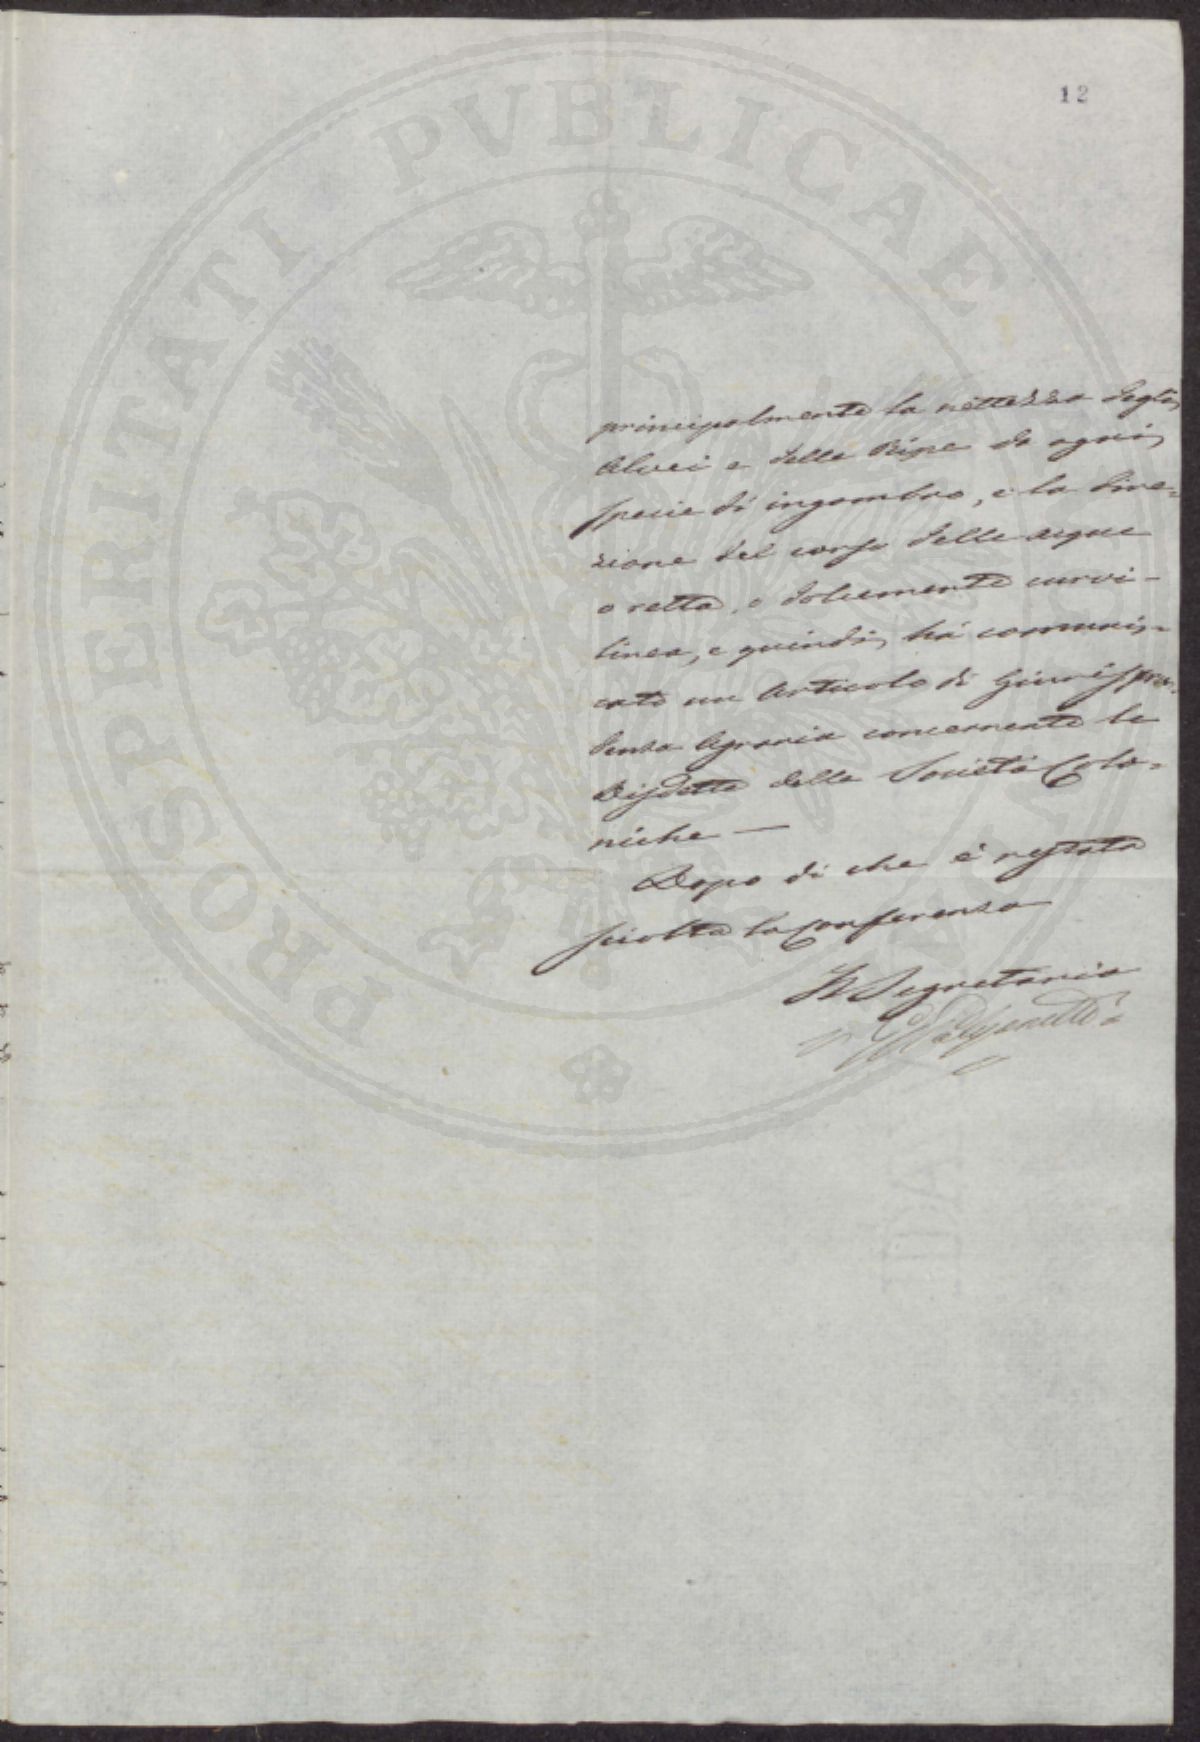 12
PROSPERITATI PVBLICAE
principalmente la nettezza degli
Alvei e delle Ripe da ogni
specie di ingombro, e la dire-
zione del corso delle acque
o retta, o dolcemente curvi-
linea, e quindi ha comuni-
cato un Articolo di Giurispru-
denza Agraria concernente le
Disdette delle Società Colo-
niche —
Dopo di che è restata
sciolta la Conferenza
Il Segretario